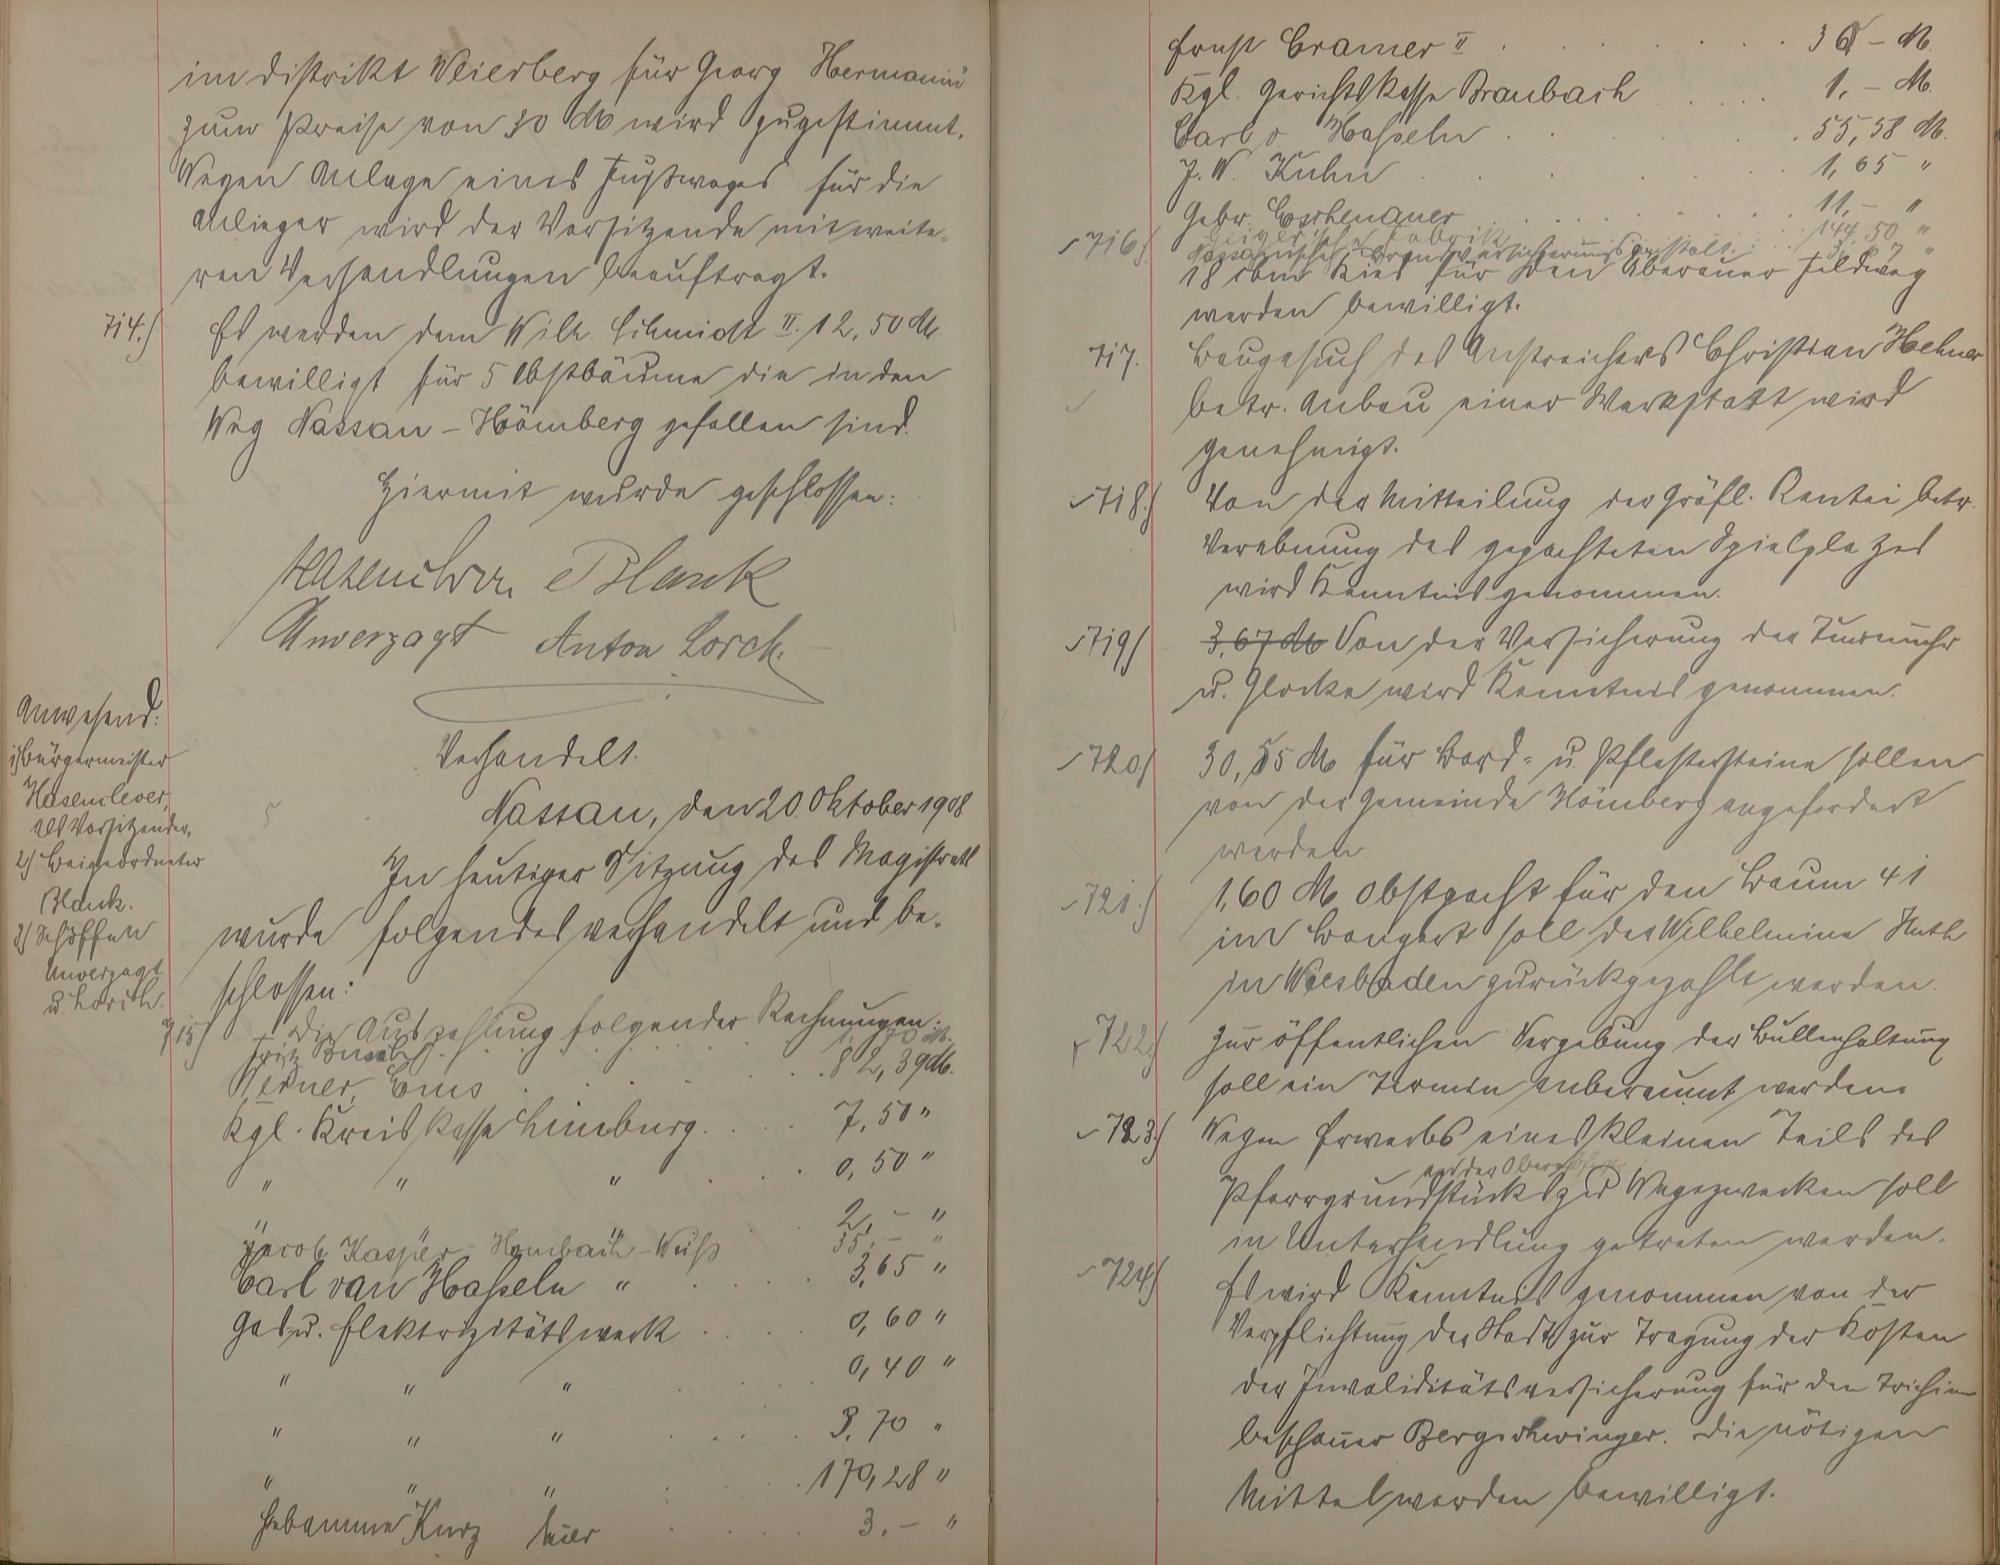 im Distrikt Weierberg für Georg Hermann
zum Preise von 30 M wird zugestimmt.
Wegen Anlage eines Fußweges für die
Anlieger wird der Vorsitzende mit weite-
ren Verhandlungen beauftragt.
714.) Es werden dem Wilh. Schmidt II. 12,50 M
bewilligt für 5 Obstbäume die in den
Weg Nassau - Hömberg gefallen sind.
Hiermit wurde geschlossen:
Hasenclever. Blank
Unverzagt Anton Lorch.
Anwesend:
1) Bürgermeister
Hasenclever,
als Vorsitzender,
2) Beigeordneter
Blank.
3) Schöffen
Unverzagt
u. Lorch.
Verhandelt.
Nassau, den 20. Oktober 1908
In heutiger Sitzung des Magistrats
wurde folgendes verhandelt und be-
schlossen:
715) Die Auszahlung folgender Rechnungen.
Fritz Busch
Werner, Ems 82,39 M.
Kgl. Kreiskasse Limburg. 7,50 "
" " " 0,50 "
" " " 2,- "
Jacob Kasper - Hombach - 35,- "
Carl van Hasseln " 3,65 "
Gas u. Elektrizitätswerk 0,60 "
" " " 0,40 "
" " " 3,70 "
" " " 170,28 "
Hebamme Kurz hier 3.- "
Ernst Cramer II 36 - M.
Kgl. Gerichtskasse Braubach 1,- M.
Carl v. Hasseln 55,58 M.
J. W. Kuhn 1,65 "
Gebr. Eschenauer 11,- "
Fabrik 144,50 "
Nassauische Brandversicherungsanstalt 3,67 "
716) 18 cbm Kies für den Oberauer Feldweg
werden bewilligt.
717. Baugesuch des Anstreichers Christian Hehner
betr. Anbau einer Werkstatt wird
genehmigt.
718.) Von der Mitteilung der Gräfl. Rentei betr.
Verebnung des gepachteten Spielplatzes
wird Kenntnis genommen.
719) 3,67 M Von der Versicherung der Turmuhr
u. Glocke wird Kenntnis genommen.
720) 30,55 M für Bord- u. Pflastersteine sollen
von der Gemeinde Hömberg angefordert
werden.
721.) 1,60 M Obstpacht für den Baum 41
im Bongert soll der Wilhelmine Huth
in Wiesbaden zurückgezahlt werden.
722.) Zur öffentlichen Vergebung der Bullenhaltung
soll ein Termin anberaumt werden.
723.) Wegen Erwerbs eines kleinen Teils des
an der
Pfarrgrundstücks zu Wegezwecken soll
in Unterhandlung getreten werden.
724.) Es wird Kenntnis genommen von der
Verpflichtung der Stadt zur Tragung der Kosten
der Invaliditätsversicherung für den Trichinen
beschauer Bergschwinger. Die nötigen
Mittel werden bewilligt.